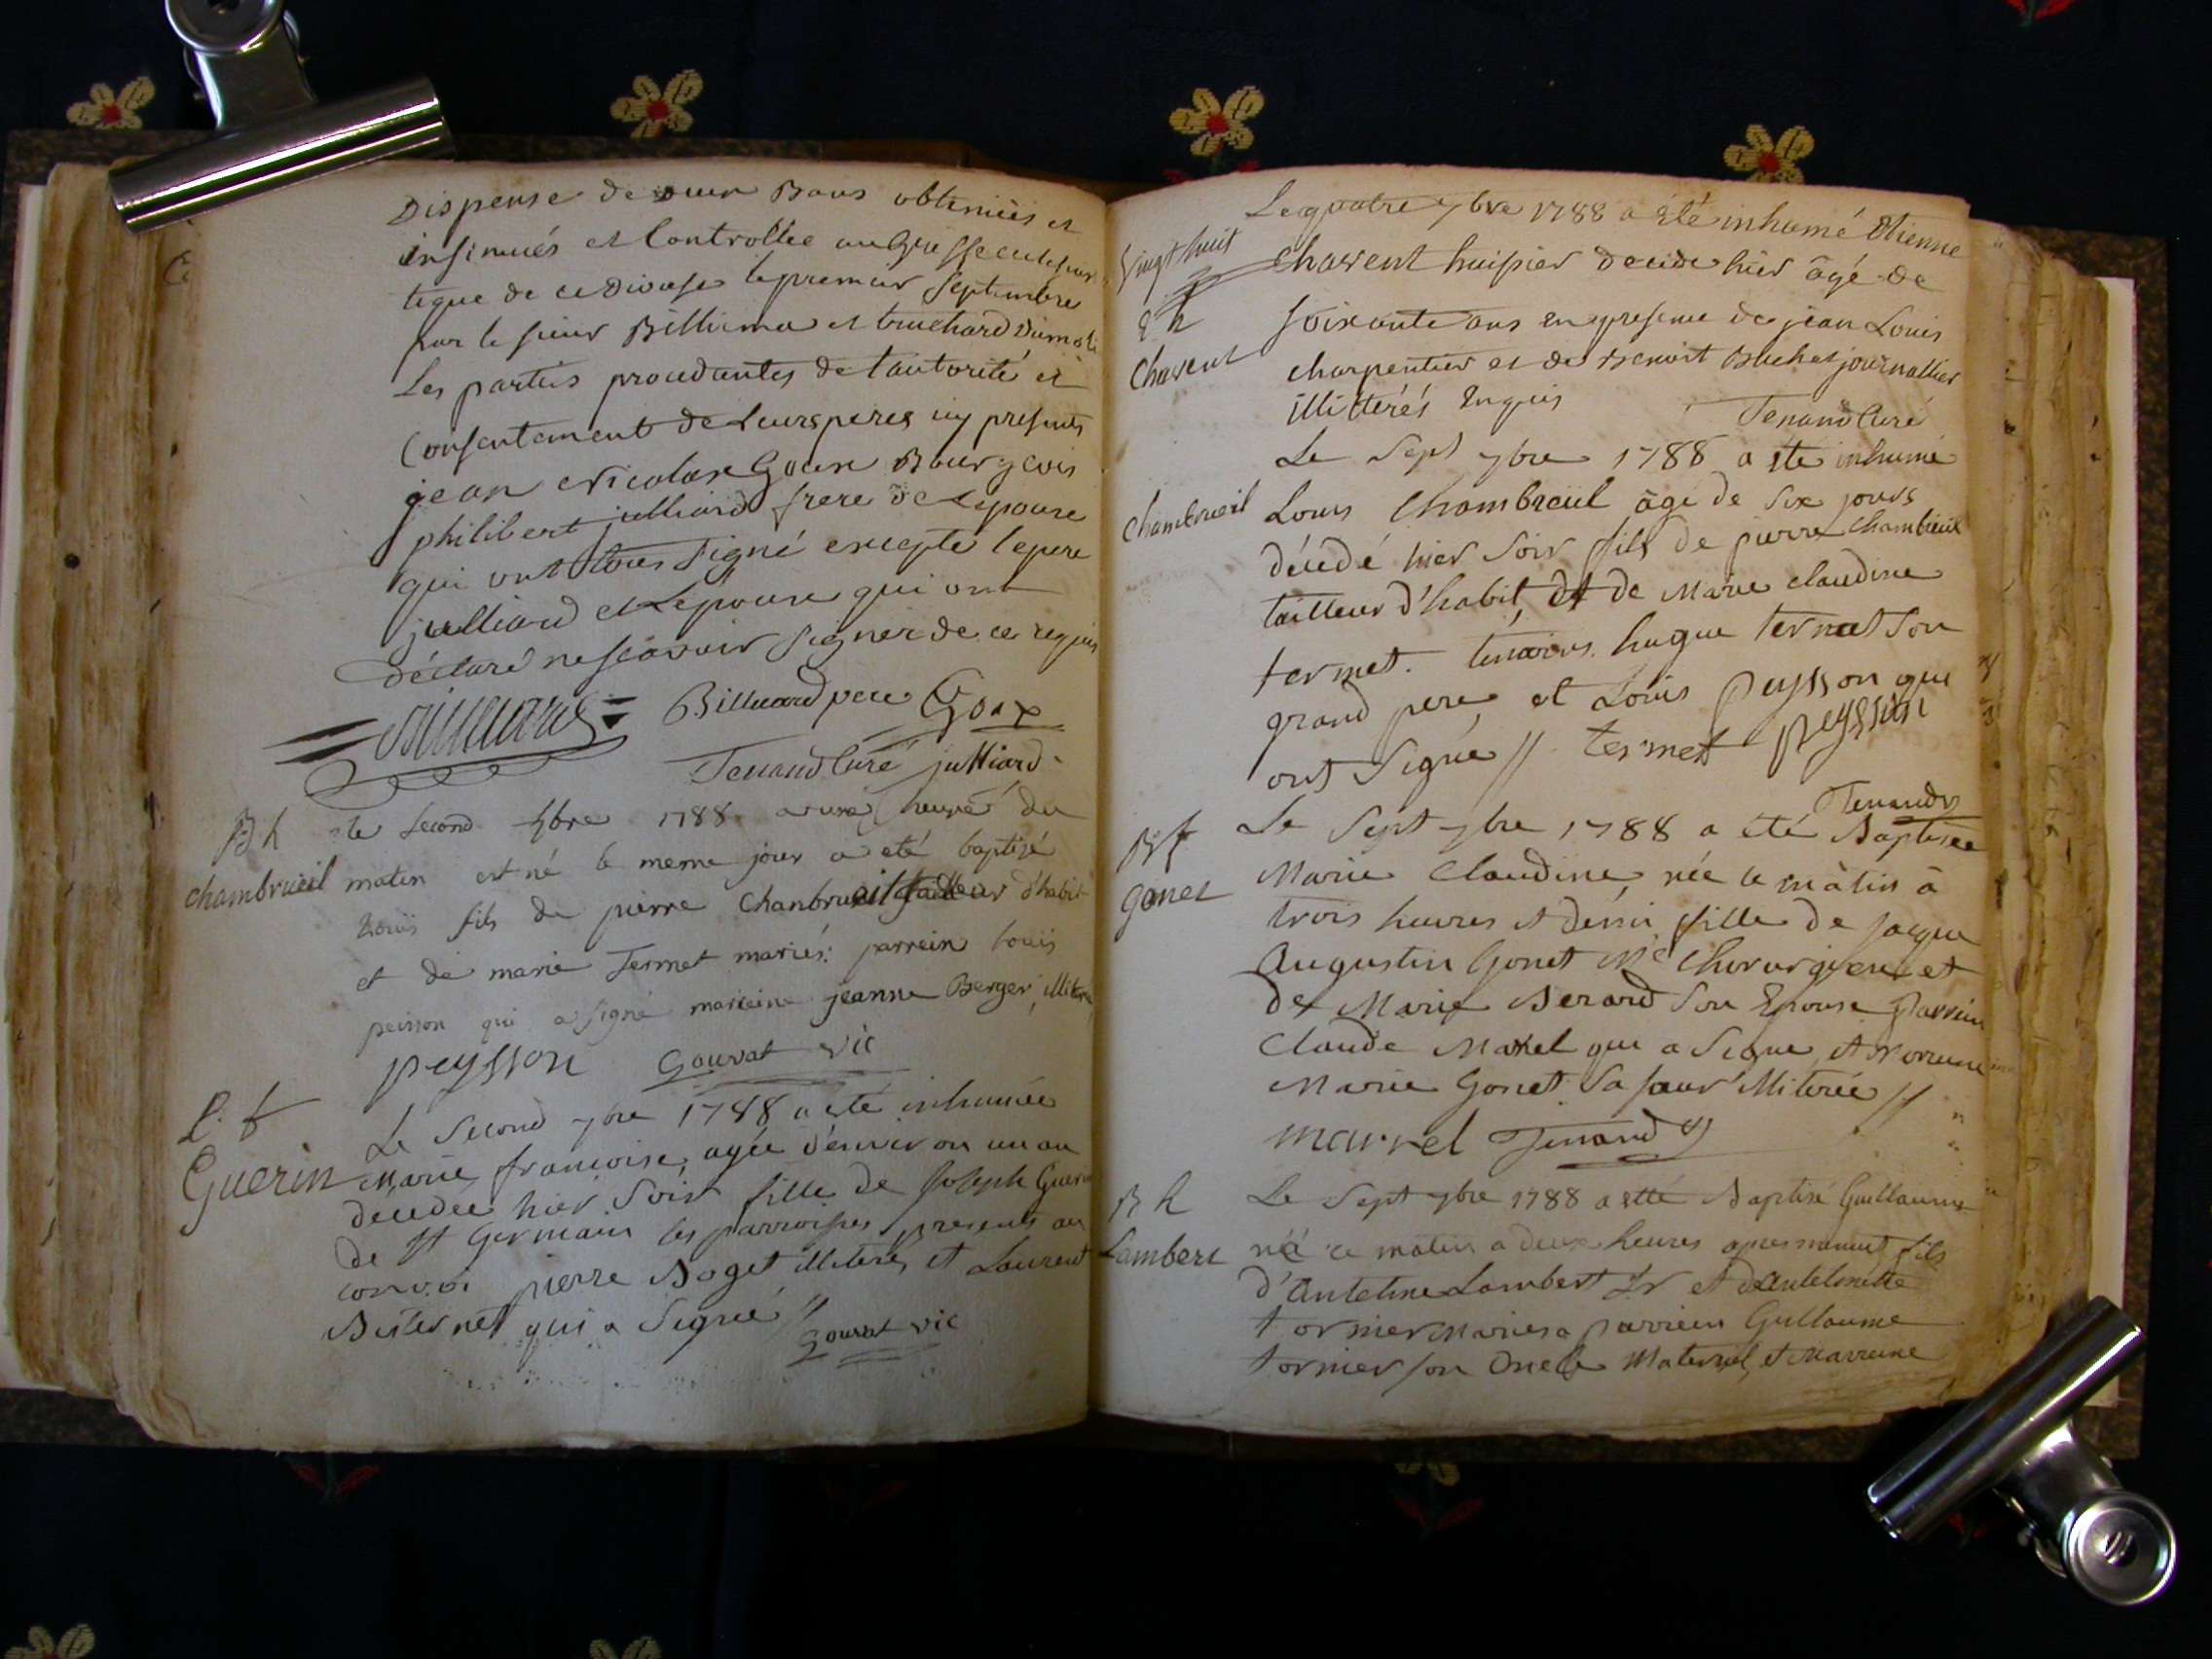 Dispense de deux Bans obtenües et
insinués et Controllée au Greffe eclesias
tique de ce diocese le premier Septembre
par le sieur Billiema et truchard Dumoli
Les parties procedantes de l'autorité et
Consentement de Leurs peres icy presents
jean Nicolas Goux Bourgeois
philibert julliard frere de Lepouse
qui ont tous Signé excepté le pere
julliard et Lepouse qui ont
déclaré ne sçavoir Signer de ce requis
Billieard pere Goux
Tenand Curé julliard
B h le second 7bre 1788 a une heure du
chambrueil matin est né le meme jour a eté baptisé
Louis fils de pierre Chanbrueil tailleur d'habit
et de marie Termet mariés: parrein Louis
peisson qui a signé marreine jeanne Berger, illiteree
peysson Gourat vic
L. f Le Second 7bre 1788 a eté inhumée
Guerin Marie françoise, agée d'environ un an
décédée hier Soir fille de Joseph Guerin
de St Germain les parroisses, presents au
convoi pierre Boget illiteré, et Laurent
qui a Signé //
Gourat vic
Le quatre 7bre 1788 a été inhumé Etienne
Vingt huit Chavent huissier decide hier âgé de
E h soixante ans en presence de jean Louis
Chavent charpentier et de Benoit Buchet journallier
illitterés Enquis
Tenand Curé
Le Sept 7bre 1788 a ete inhumé
Chambrueil Louis Chambreuil âgé de Six jours
décédé hier Soir fils de pierre Chambreuil
tailleur d'habit, et de Marie claudine
termet. temoins. hugue termet Son
grand pere, et Louis peysson qui
ont Signé // termet peysson
Tenand
B f Le Sept 7bre 1788 a été Baptisée
Gonet Marie Claudine, née ce mâtin à
trois heures et demi, fille de jacque
Augustin Gonet Me Chirurgien et
de Marie Berard Son Epouse Parrein
Claude Marel qui a Signé, et Marreine
Marie Gonet Sa sœur Illiterée //
marrel Tenand
B h Le Sept 7bre 1788 a etté Baptisé Guillaume
Lambert né ce matin a deux heures apres minuit, fils
d'Antelme Lambert et d'Antelmette
tormier Mariés, parrein Guillaume
tormier son Oncle Maternel, et Marreine